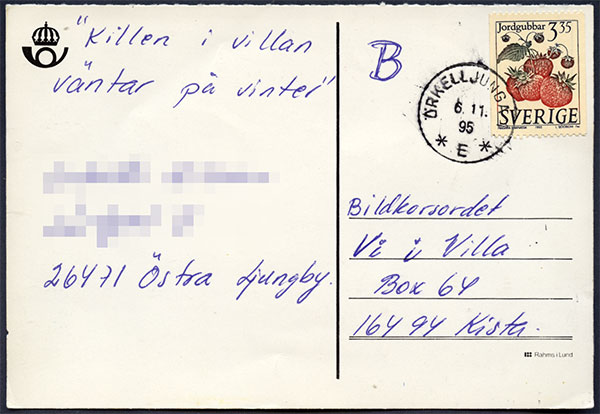 "Killen i villan
väntar på vinter"
26471 Östra Ljungby.
B
Jordgubbar 3 35
SVERIGE
ÖRKELLJUNGA
6.11.
95
* E *
Bildkorsordet
Vi i Villa
Box 64
164 94 Kista.
Rahms i Lund